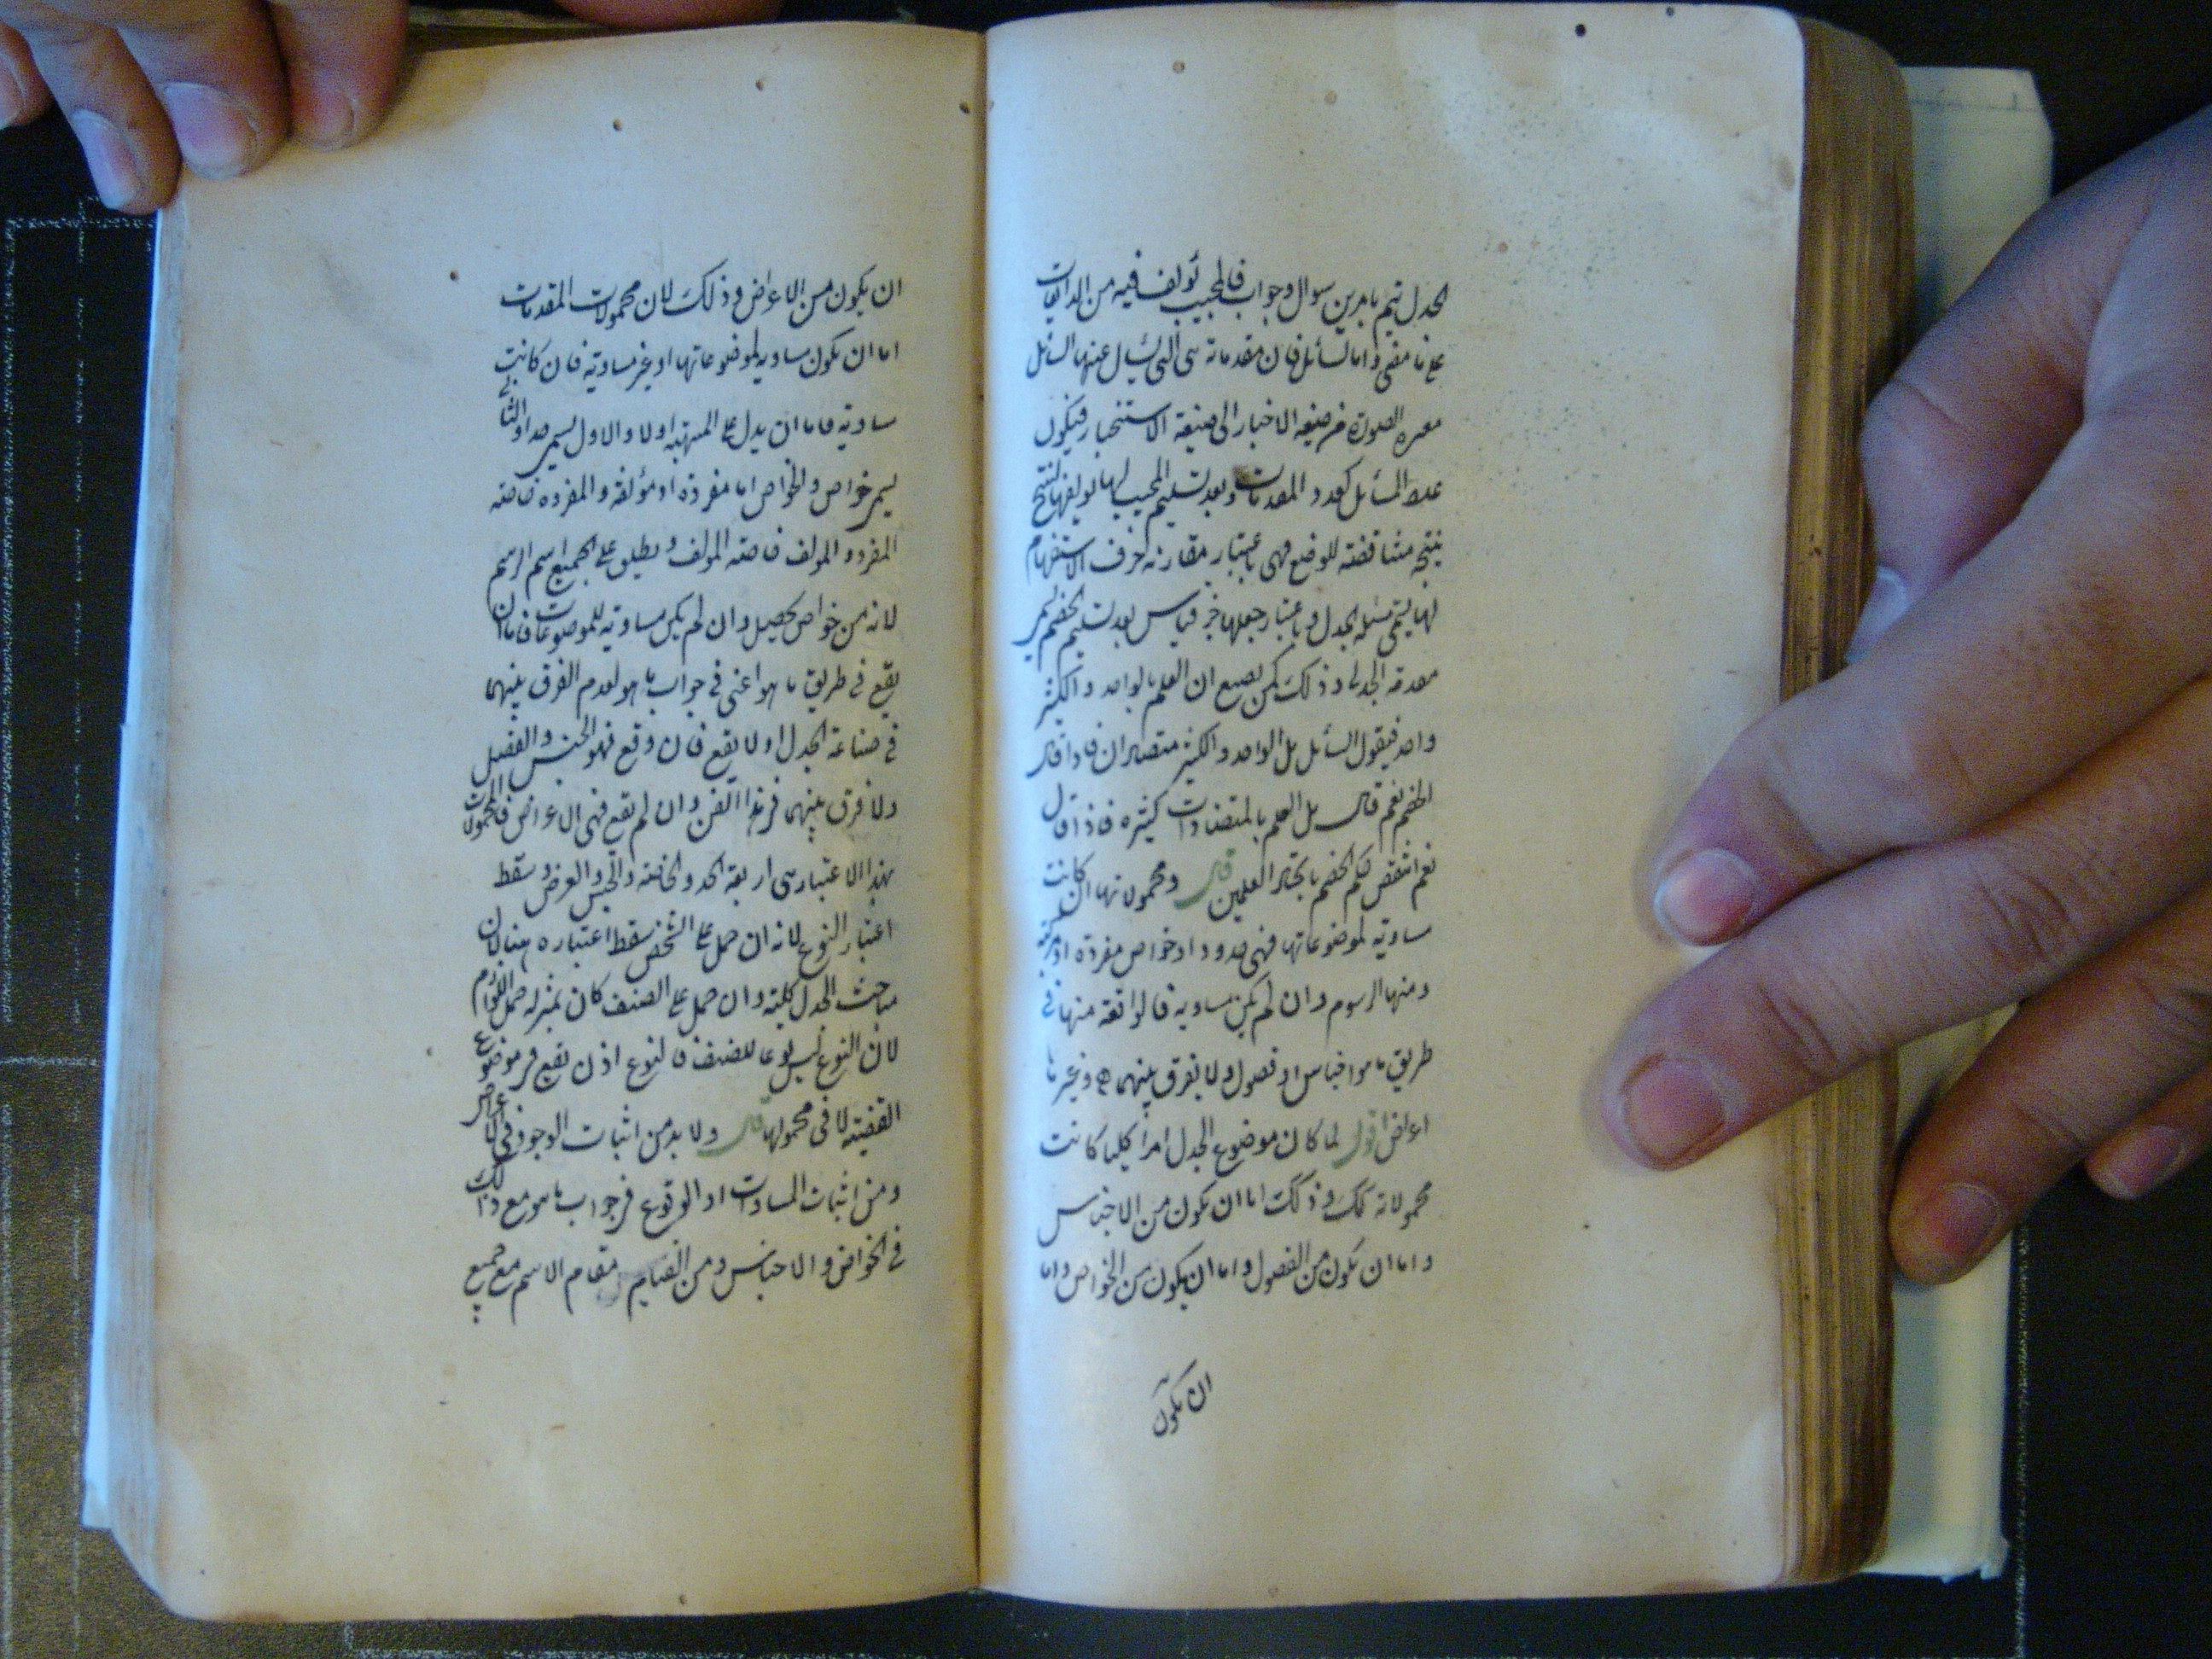 الجدل تيم بامرين سوال وجواب فالمجيب يولف فيه من الذايعات
على ما مضى واما السائل فان مقدماته هى التى يسال عنها السائل
الصورة من صيغه الاخبار الى صيغة الاستخبار فيكون
عدد المسائل كعدد المقدمات وبعد تسليم المجيب لها يولفها لينتج
نتيجه مناقضته للوضع فهى باعتبار مقارنه حرف الاستفهام
لها يسمى مسئله الجدل وباعتبار جعلها جزء قياس بعد تسليم الخصم يسمى
مقدمه الجدل وذلك كمن يضع ان العلم بالواحد والكثير
واحد فيقول السائل هل الواحد والكثير متضادان فاذا قال
الخصم نعم قال هل العلم بالمتضادات كثيره فاذا قال
نعم انتقض حكم الخصم باتحاد العلمين قال ومحمولاتها ان كانت
مساوية لموضوعاتها فهى حدود او خواص مفردة او مركبة
ومنها الرسوم وان لم يكن مساويه فالواقعة منها فى
طريق ما هو اجناس او فصول ولا يفرق بينهما ه وغيرها
اعراض اقول لما كان موضوع الجدل امرا كليا كانت
محمولاته كك وذلك اما ان يكون من الاجناس
واما ان يكون من الفصول واما ان يكون من الخواص واما
ان يكون
ان يكون من الاعراض وذلك لان محمولات المقدمات
اما ان يكون مساويه لموضوعاتها او غير مساوية فان كانت
مساوية فاما ان يدل على المهية اولا والاول يسمى حدا والثانى
يسمى خواص والخواص اما مفردة او مؤلفة والمفردة خاصة
المفرد والمولف خاصته المولف ويطلق على الجميع اسم الرسم
لانه من خواص تحصيل وان لم يكن مساوية للموضوعات فاما ان
يقع فى طريق ما هو اعنى فى جواب ما هو لعدم الفرق بينهما
فى صناعة الجدل او لا يقع فان وقع فهو الجنس والفصل
ولا فرق بينهما فى هذا الفن وان لم يقع فهى الاعراض فالمحمولات
بهذا الاعتبار هى اربعة الحد والخاصة والجنس والعرض وسقط
اعتبار النوع لانه ان حمل على الشخص سقط اعتباره هنا لان
مباحث الجدل كلية وان حمل على الصنف كان بمنزله حمل اللوازم
لان النوع ليس نوعا للصنف فالنوع اذن يقع فى موضوع
القضية لا فى محمولها قال ولا بد من اثبات الوجود فى الاعراض
ومن اثبات المساوات او الوقوع فى جواب ما هو مع ذلك
فى الخواص والاجناس ومن القيام مقام الاسم مع جميع